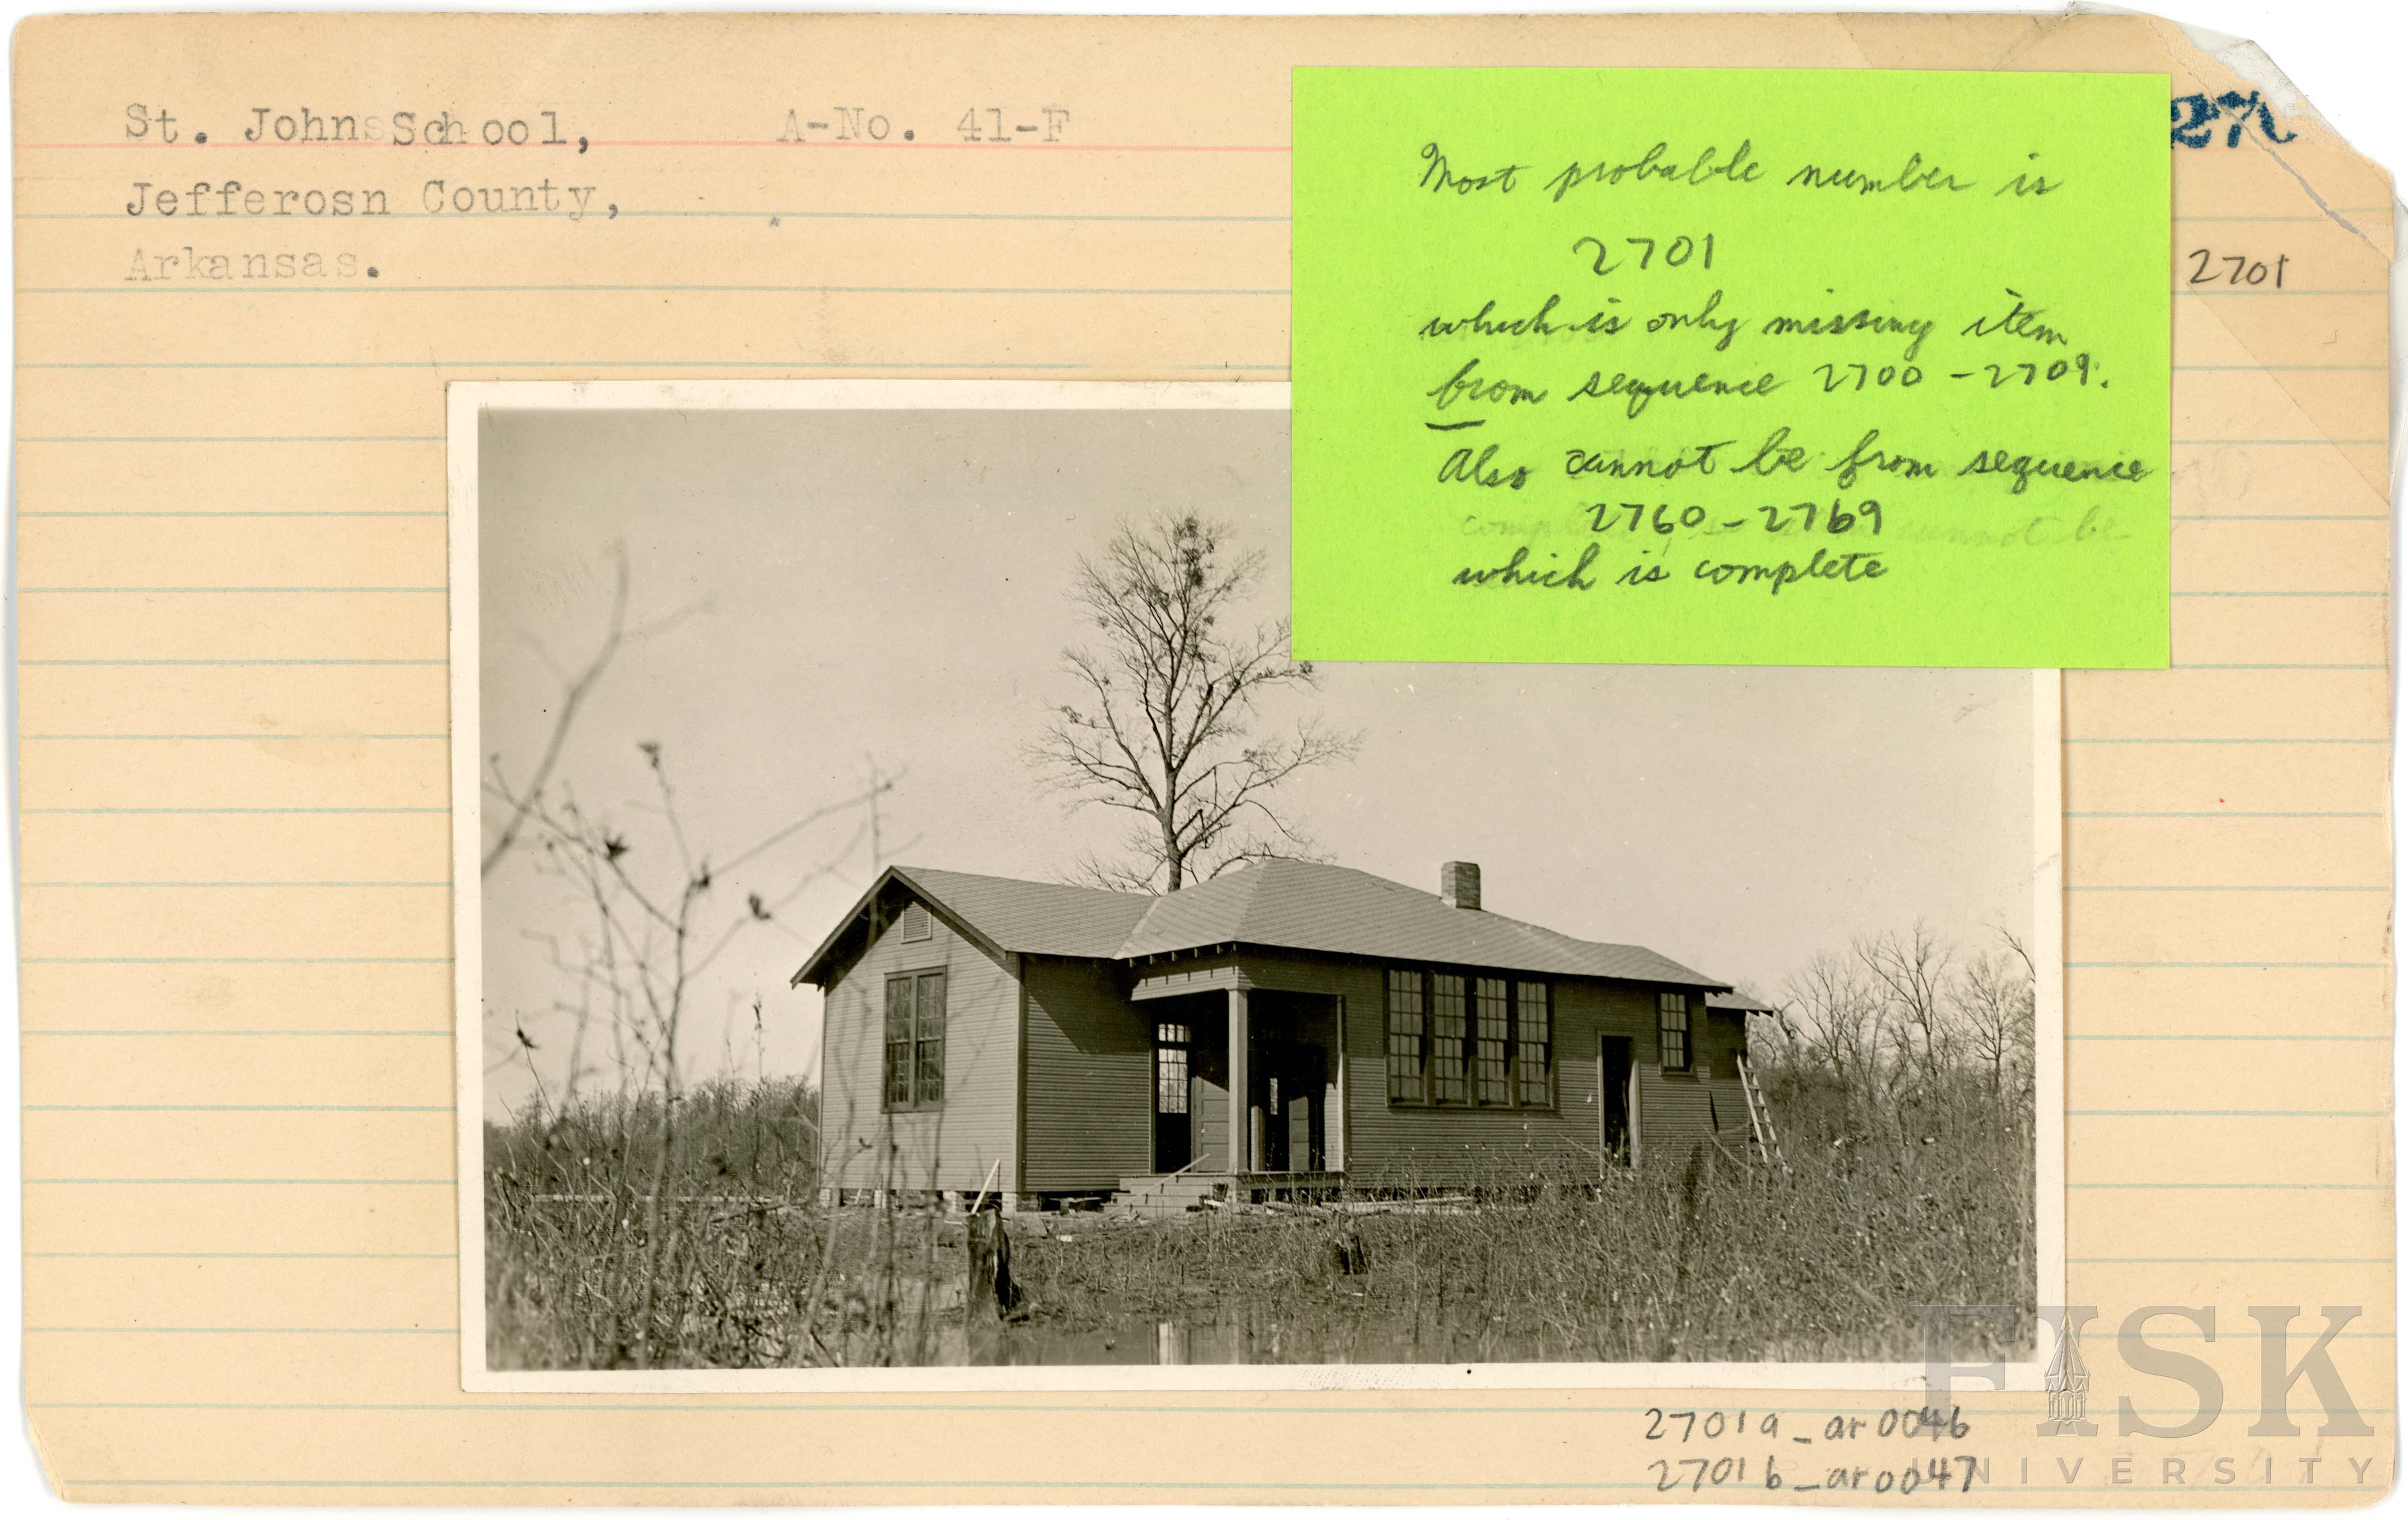 St. Johns School, A-No. 41-F
Jefferosn County,
Arkansas.
27
2701
Most probable number is
2701
which is only missing item
from sequence 2700 - 2709.
Also cannot be from sequence
2760 - 2769
which is complete
2701a_ar0046
2701b_ar0047
FISK
UNIVERSITY